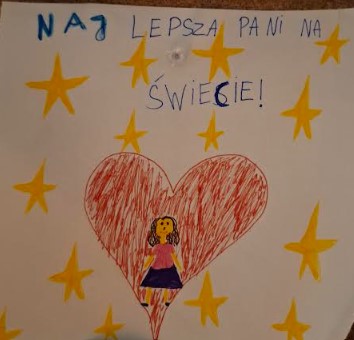 NAJ LEPSZA PANI NA
ŚWIECIE!